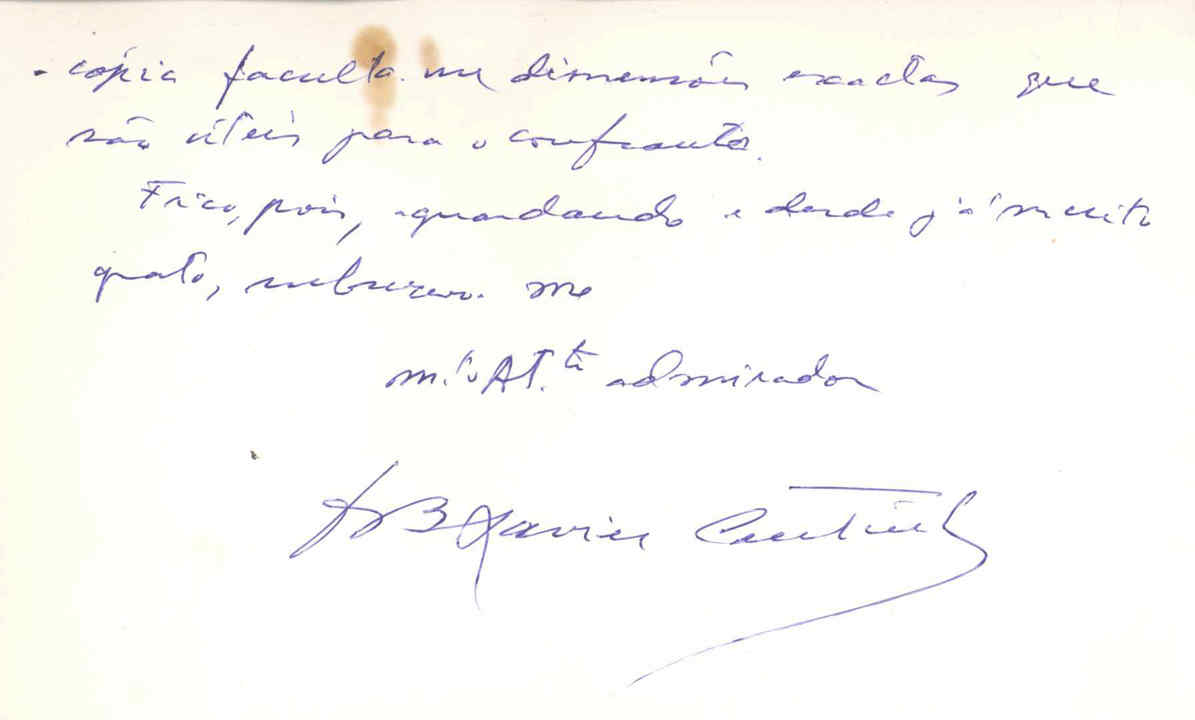 - cópia faculta-me dimensões exactas que
são úteis para o confronto.
Fico, pois, aguardando e desde já muito
grato, subscrevo-me
m.to At.te admirador
AB Xavier Coutinho